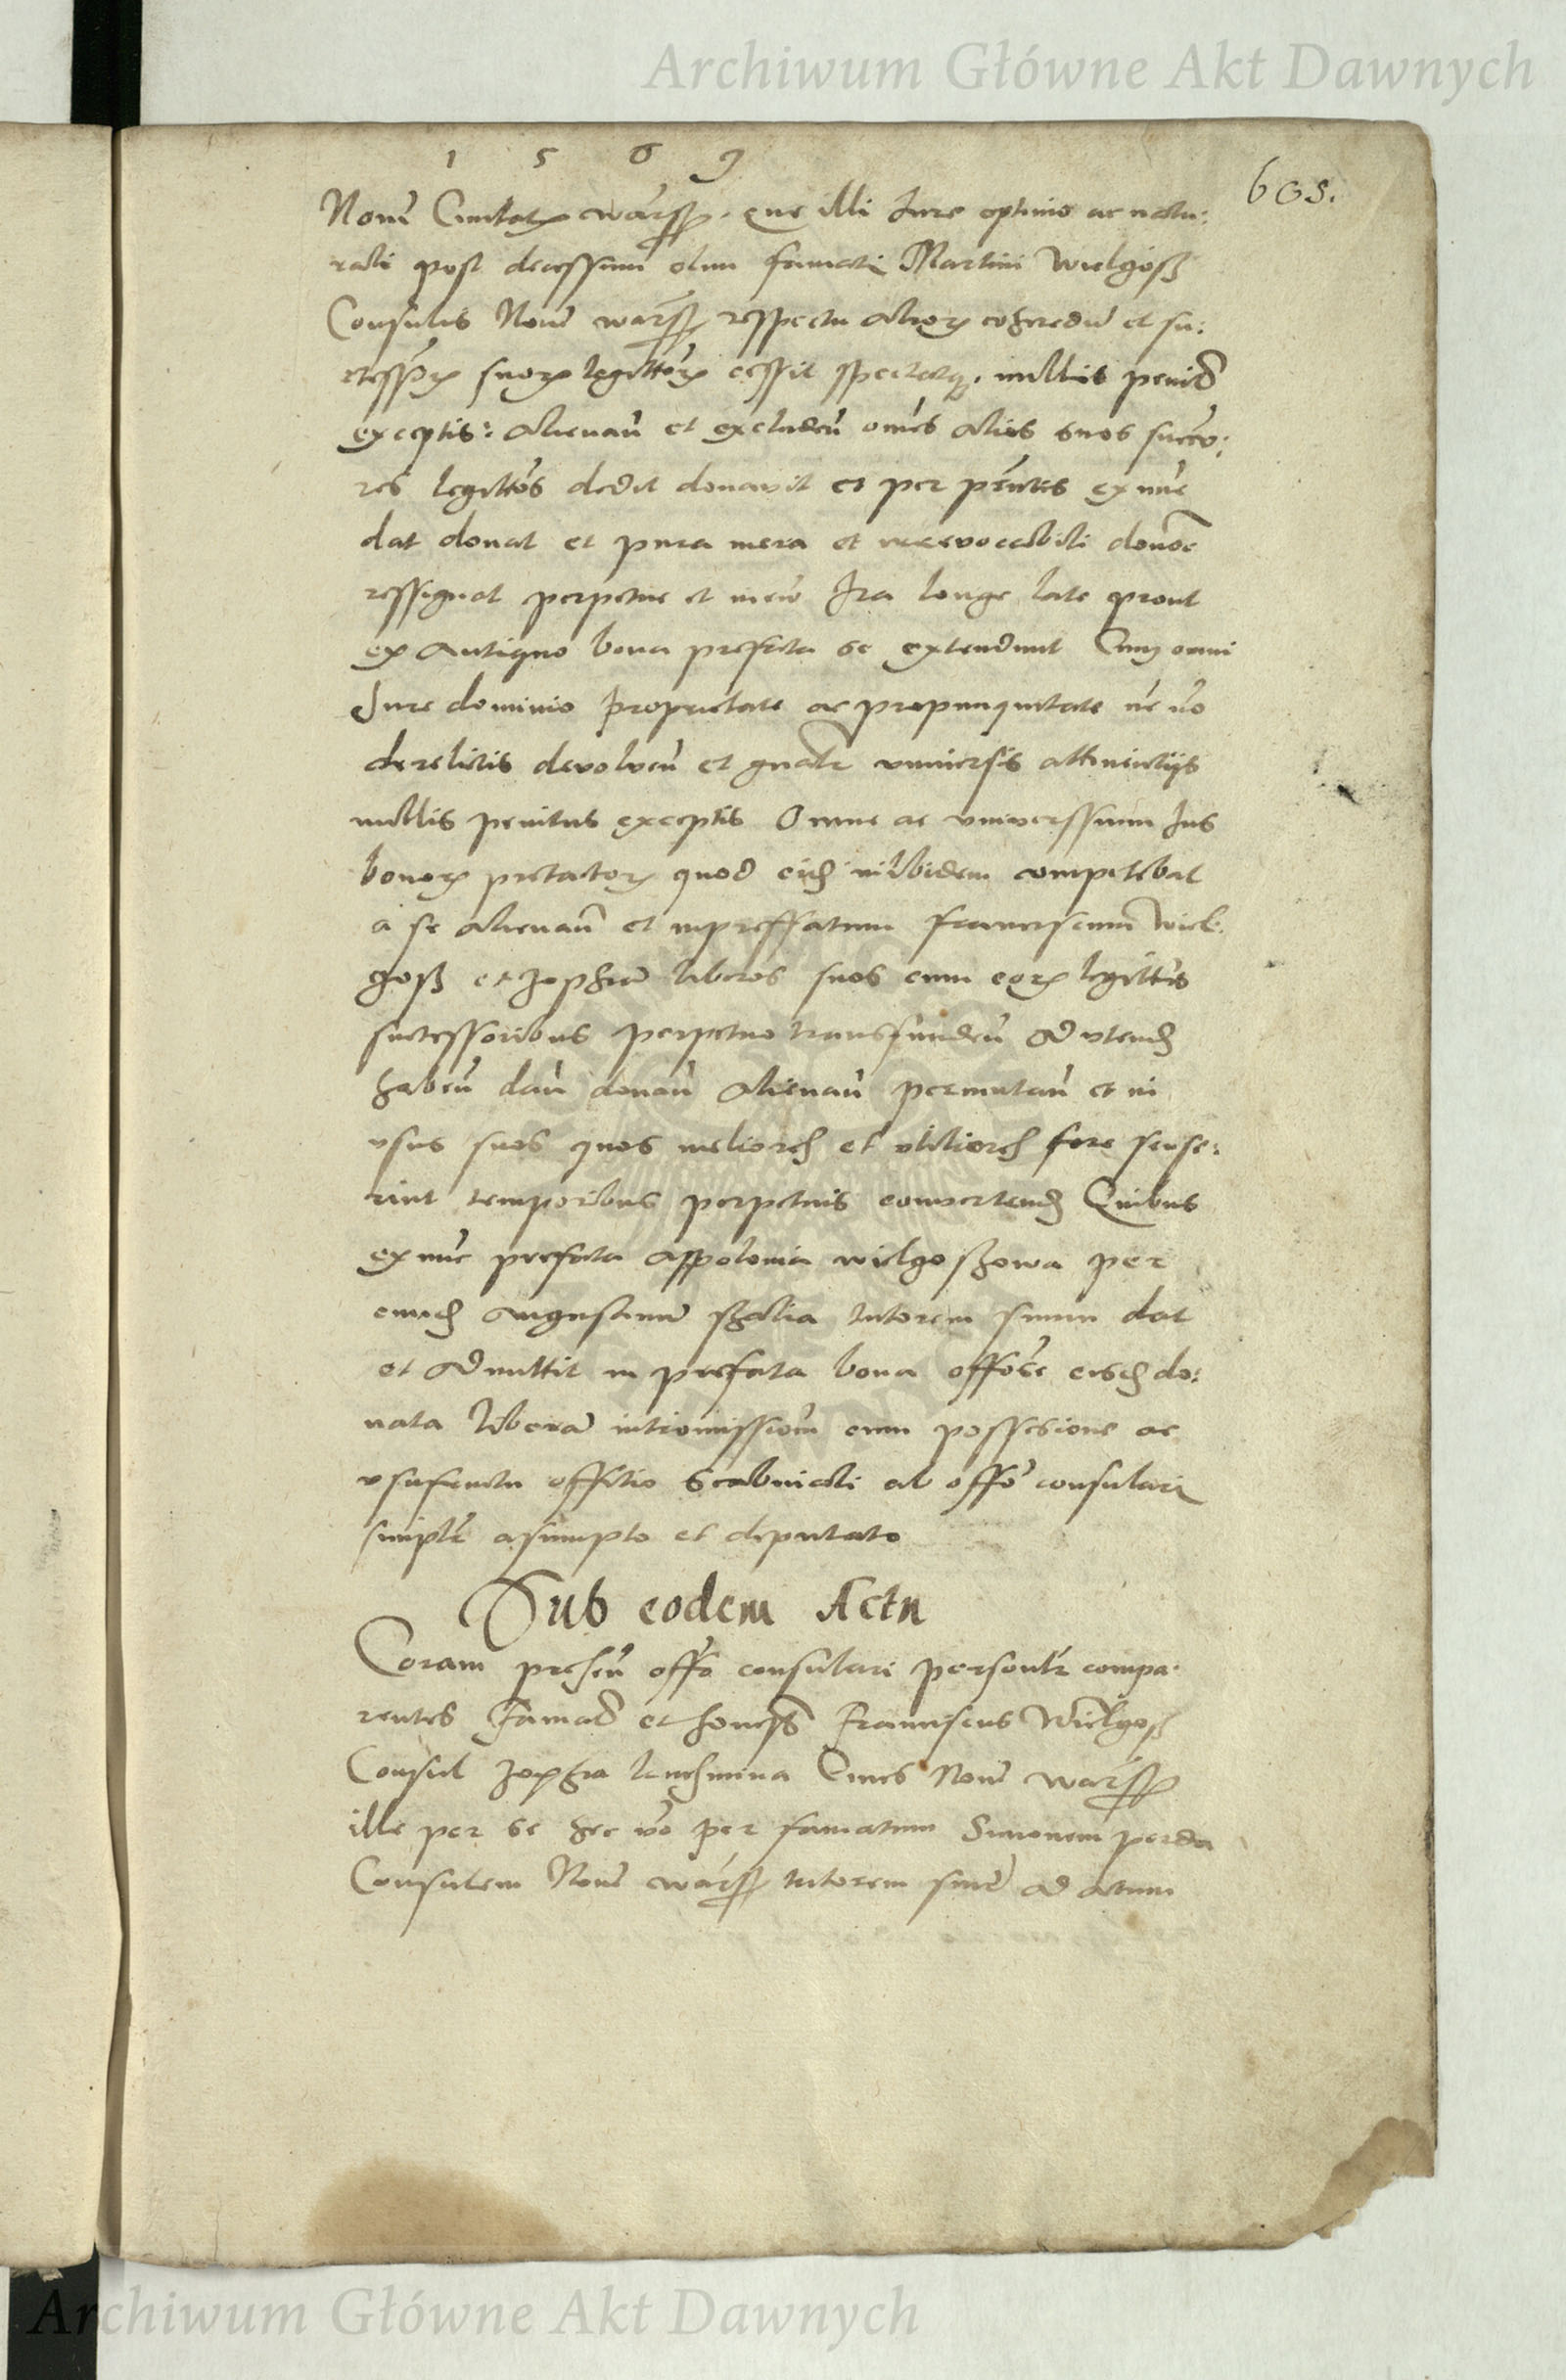 Archiwum Główne Akt Dawnych
1 5 6 9
605.
Noue Ciuitatis warss. que illi Iure optimo ac natu:
rali post decessum olim famati Martini Wielgosz
Consulis Noue warss respectu alior coheredu et su:
cessor suor legittor cessit spectatq. nullis penit
exceptis: alienan et excluden omes alios suos succo:
res legittos dedit donavit et per pntes ex nuc
dat donat et pura mera et irrevocabili donoe
ressignat perpetue et inew Ita longe late prout
ex antiquo bona prefata se extendunt Cum omni
Iure dominio proprietate ac propinquitate
derelictis devolven et gnalr vniuersis attinentijs
nullis penitus exceptis Omne ac vniverssum Ius
bonor pretactor quod eid ibidem competebat
a se alienan et inpreffatum franciscum Wiel:
gosz et zophia liberos suos cum eor legittis
successoribus perpetuo transfunden ad vtend
haben dan donan alienan permutan et in
vsus suos quos meliores et vtiliores fore sense:
rint temporibus perpetuis convertend Quibus
ex nuc prefata appolonia wielgoszowa per
eund augustinu tutorem suum dat
et admittit in prefata bona offose eisd do:
nata libera intromission cum possesione ac
vsufructu offitio scabinali ab offo consulari
simplr asumpto et deputato
Sub eodem Actu
Coram presen offo consulari personlr compa:
rentes famat et honesta Franciscus Wielgosz
Consul zophia Ciues Noue warss
ille per se hec vo per famatum Simonem perda
Consulem Noue warss tutorem suu ad actum
Archiwum Główne Akt Dawnych